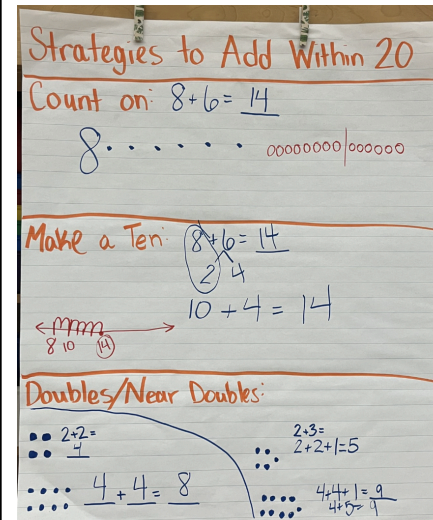 Strategies to Add Within 20
Count on: 8+6= 14
8
Make a Ten: 8+6= 14
2 4
10+4=14
8 10 14
Doubles/Near Doubles:
2+2=
4
4+4=8
2+3=
2+2+1=5
4+4+1=9
4+5=9